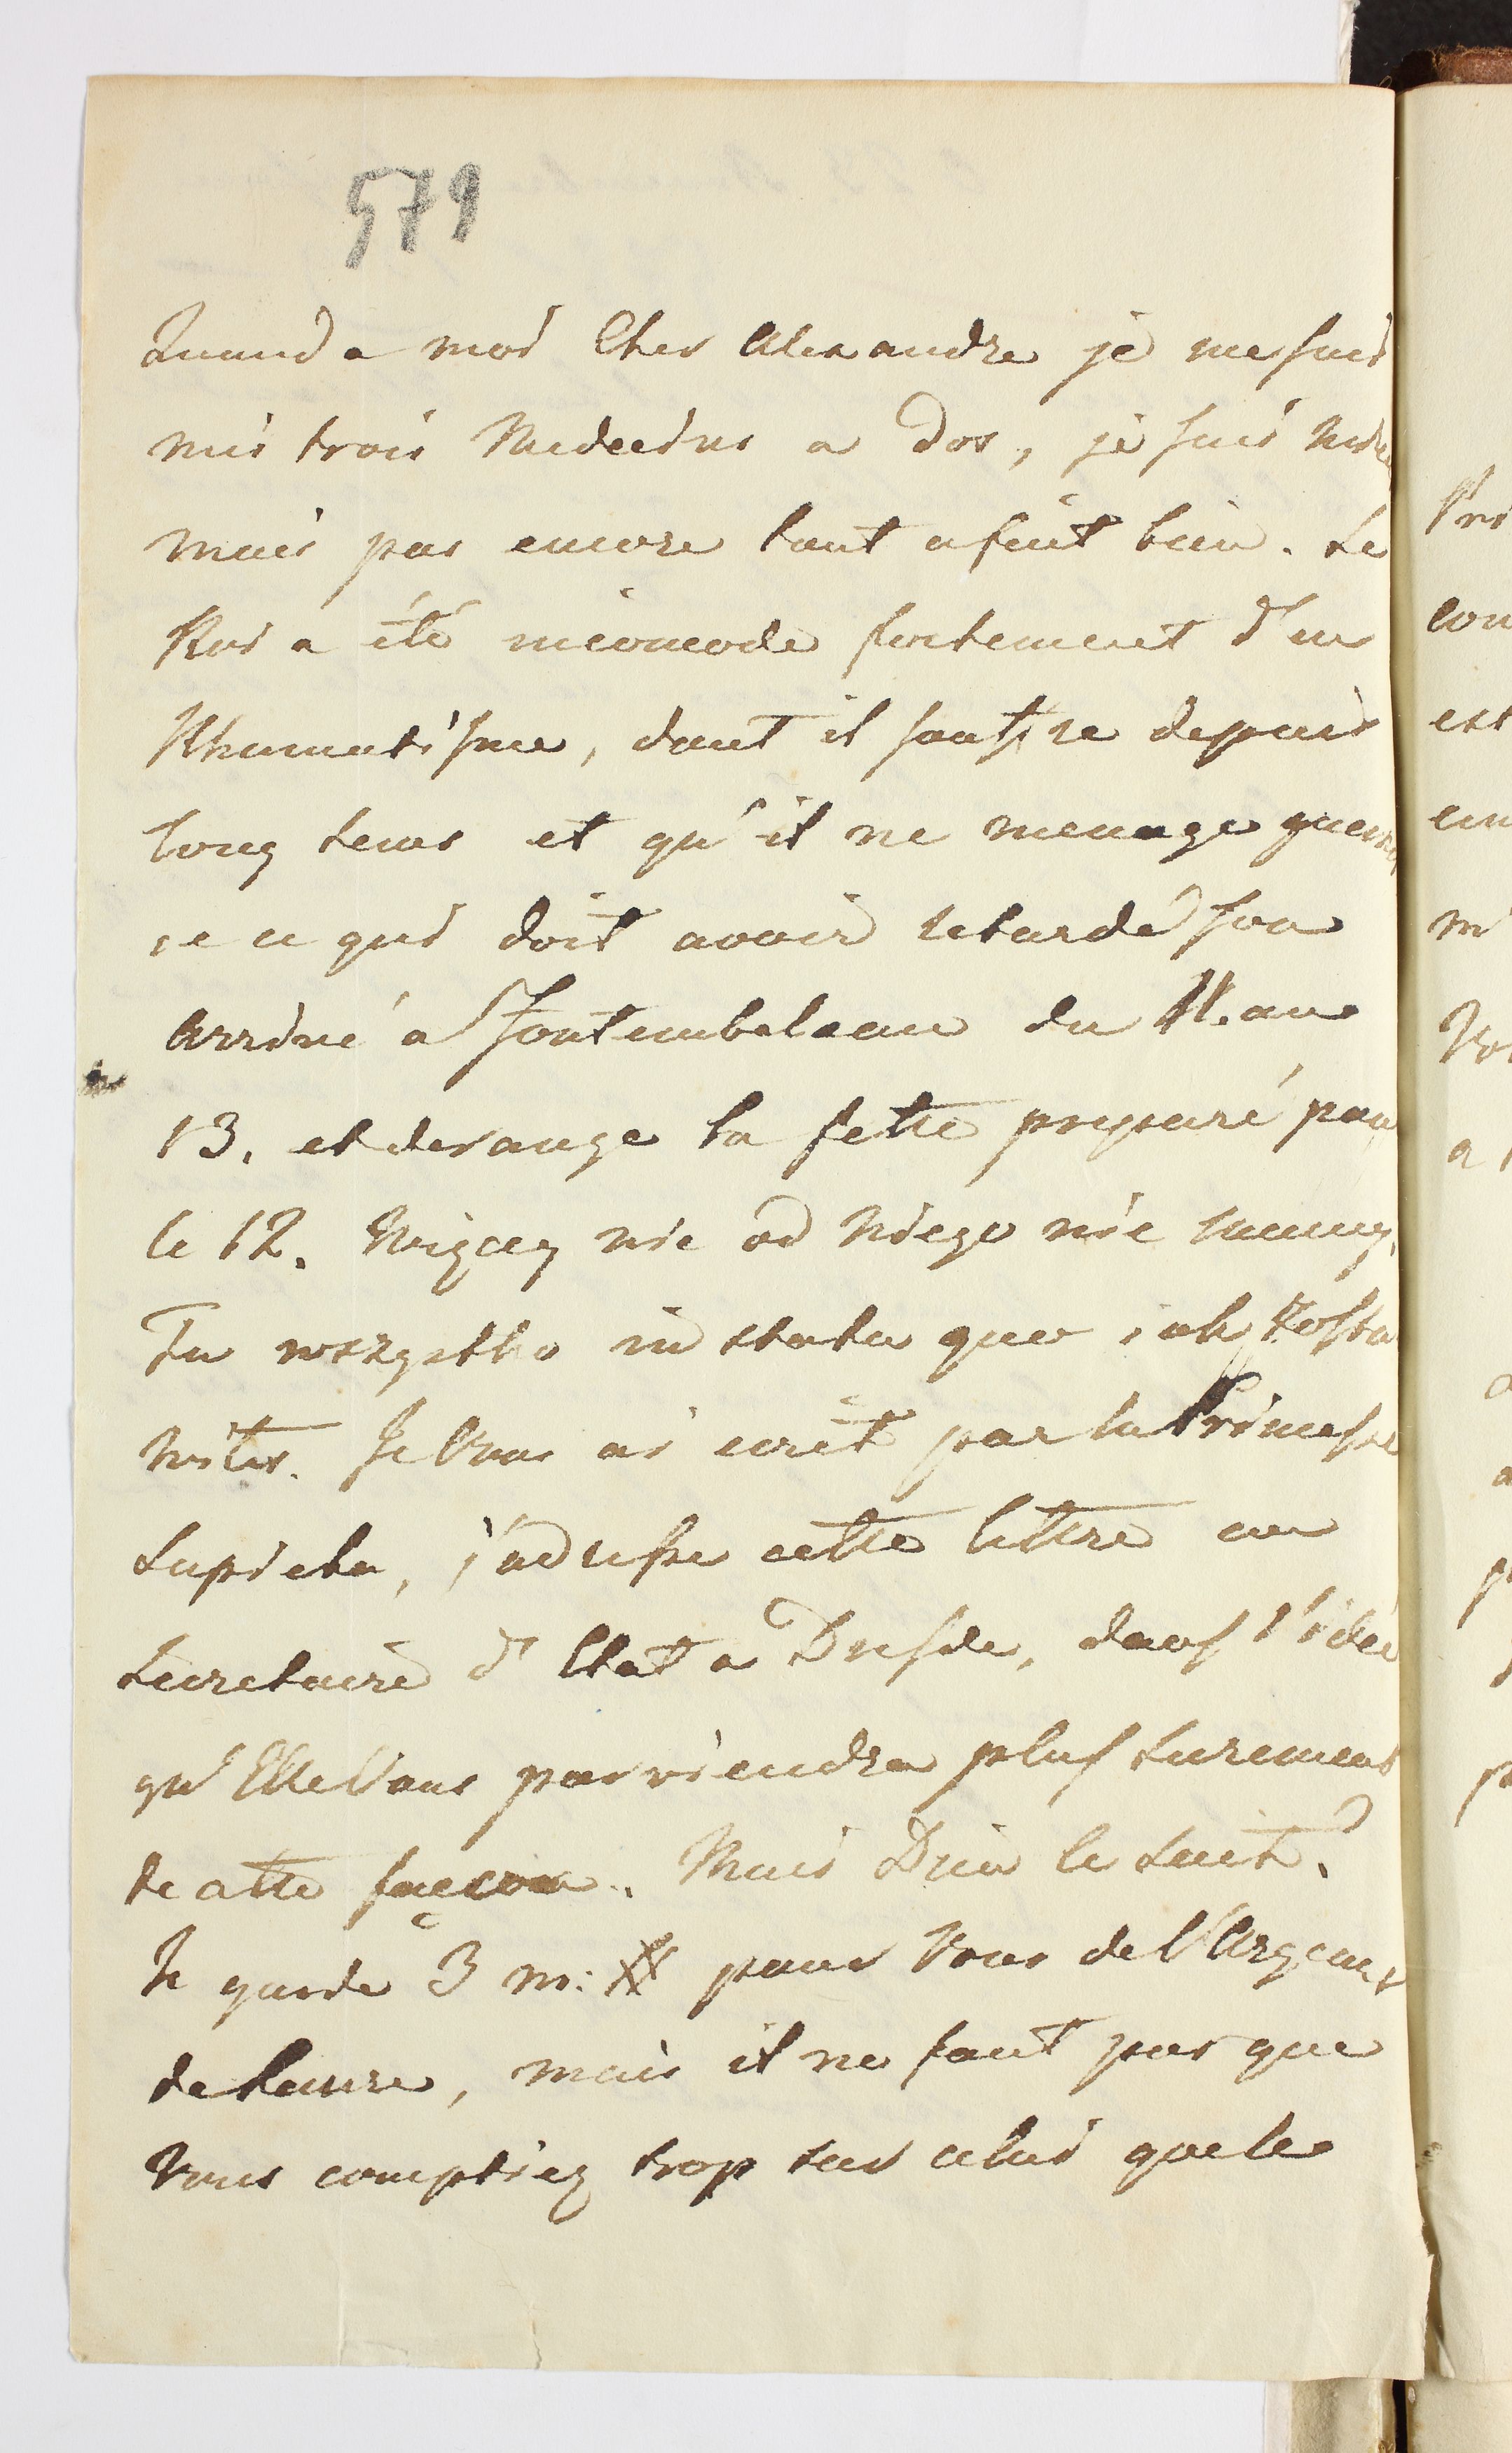 579
Quand a moi Cher Alexandre je me suis
mis trois Medecins a dos, je suis
mais pas encore tout a fait bien. Le
Roi a été incomodé fortement d'un
Rhumatisme, dont il souffre depuis
long tems et qu'il ne menage
ce qui doit avoir retardé son
Arrivé a Fontembeleau du
13. et derange la fette preparé pour
le 12. Więcey nic od Niego nie mamy.
Tu wszystko in statu quo iak
Je Vous ai ecrit par la Princesse
Sapieha, j'adresse cette lettre au
Secretaire d'Etat a Dresde, dans l'idée
qu'Elle Vous parviendra plus surement
de cette façon. Mais Dieu le sait.
Je garde 3 m: # pour Vous de l'Argent
de, mais il ne faut pas que
Vous comptiez trop sur celui que le
Pri
con
est
em
m'
Vo
a